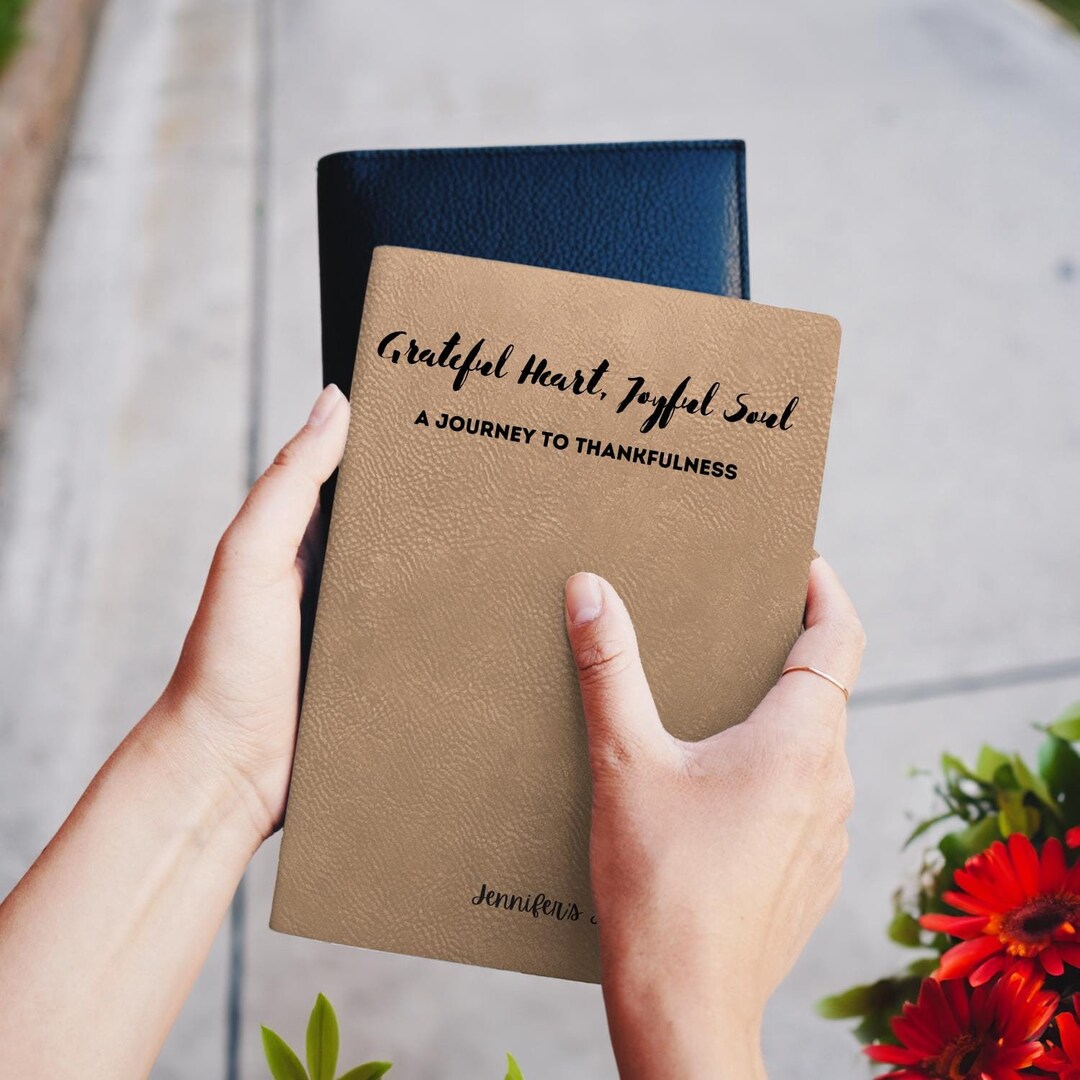 Grateful Heart, Joyful Soul
A JOURNEY TO THANKFULNESS
Jennifer's